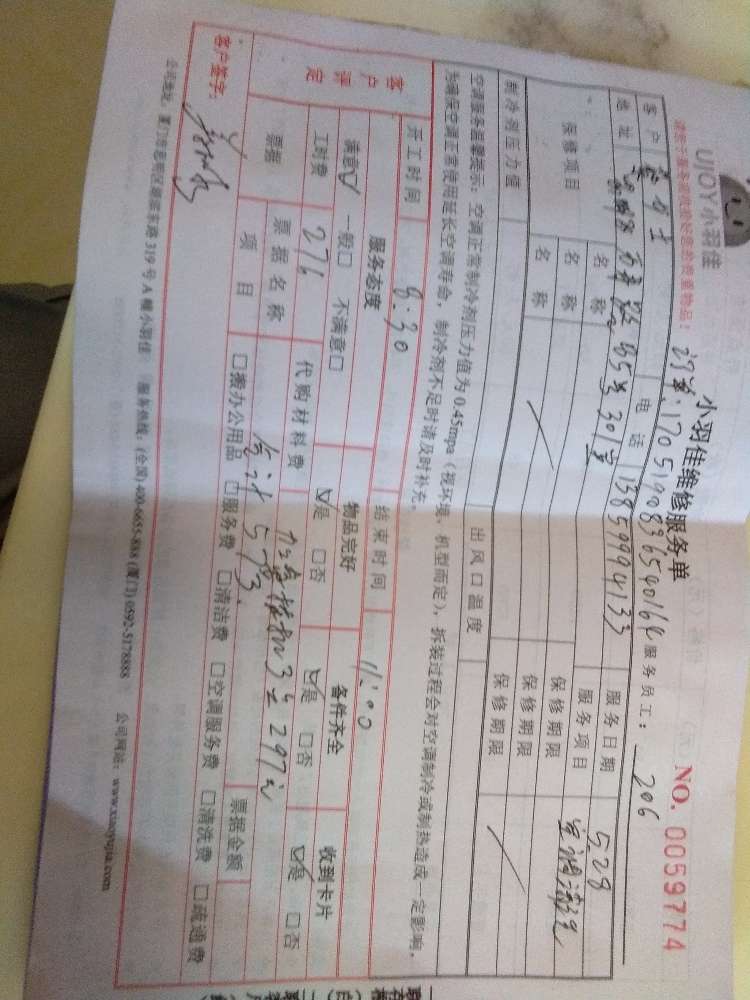 UJOY小羽佳
小羽佳维修服务单
NO. 0059774
请您于服务前收好您的贵重物品!
订单:1705190836540164
服务员工: 206
客户 女士 电话 13859994133 服务日期 5.28
地址 85号301室 服务项目 空调清洗
保修项目 名称 保修期限
名称 保修期限
名称 保修期限
制冷剂压力值 出风口温度
空调服务温馨提示:空调正常制冷剂压力值为0.45mpa(视环境、机型而定),拆装过程会对空调制冷或制热造成一定影响,
为确保空调正常使用延长空调寿命,制冷剂不足时请及时补充。
开工时间 8:30 结束时间 11:00
客户评定 服务态度 物品完好 备件齐全 收到卡片
满意☑ 一般□ 不满意□ ☑是 □否 ☑是 □否 ☑是 □否
工时费 276 代购材料费 3台297元
票据 票据名称 合计573. 票据金额
项目 □搬办公用品 □服务费 □清洁费 □空调服务费 □清洗费 □疏通费
客户签字:
公司地址:厦门市思明区湖滨东路319号A幢小羽佳 服务热线:(全国)400-6655-888 (厦门)0592-5178888 公司网站:www.xiaoyujia.com